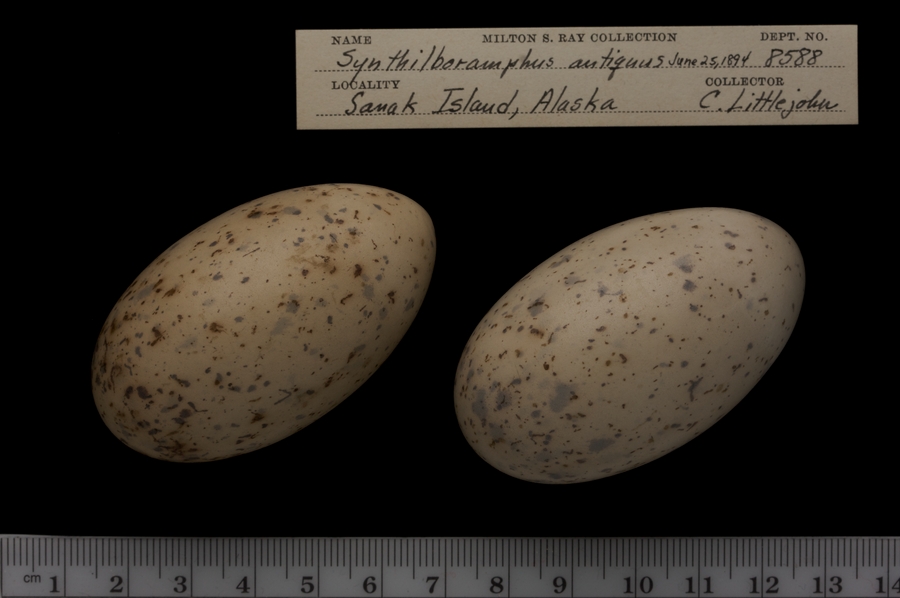 NAME MILTON S. RAY COLLECTION DEPT. NO.
Synthliboramphus antiquus June 25, 1894 8588
LOCALITY COLLECTOR
Sanak Island, Alaska C. Littlejohn
cm 1 2 3 4 5 6 7 8 9 10 11 12 13 14